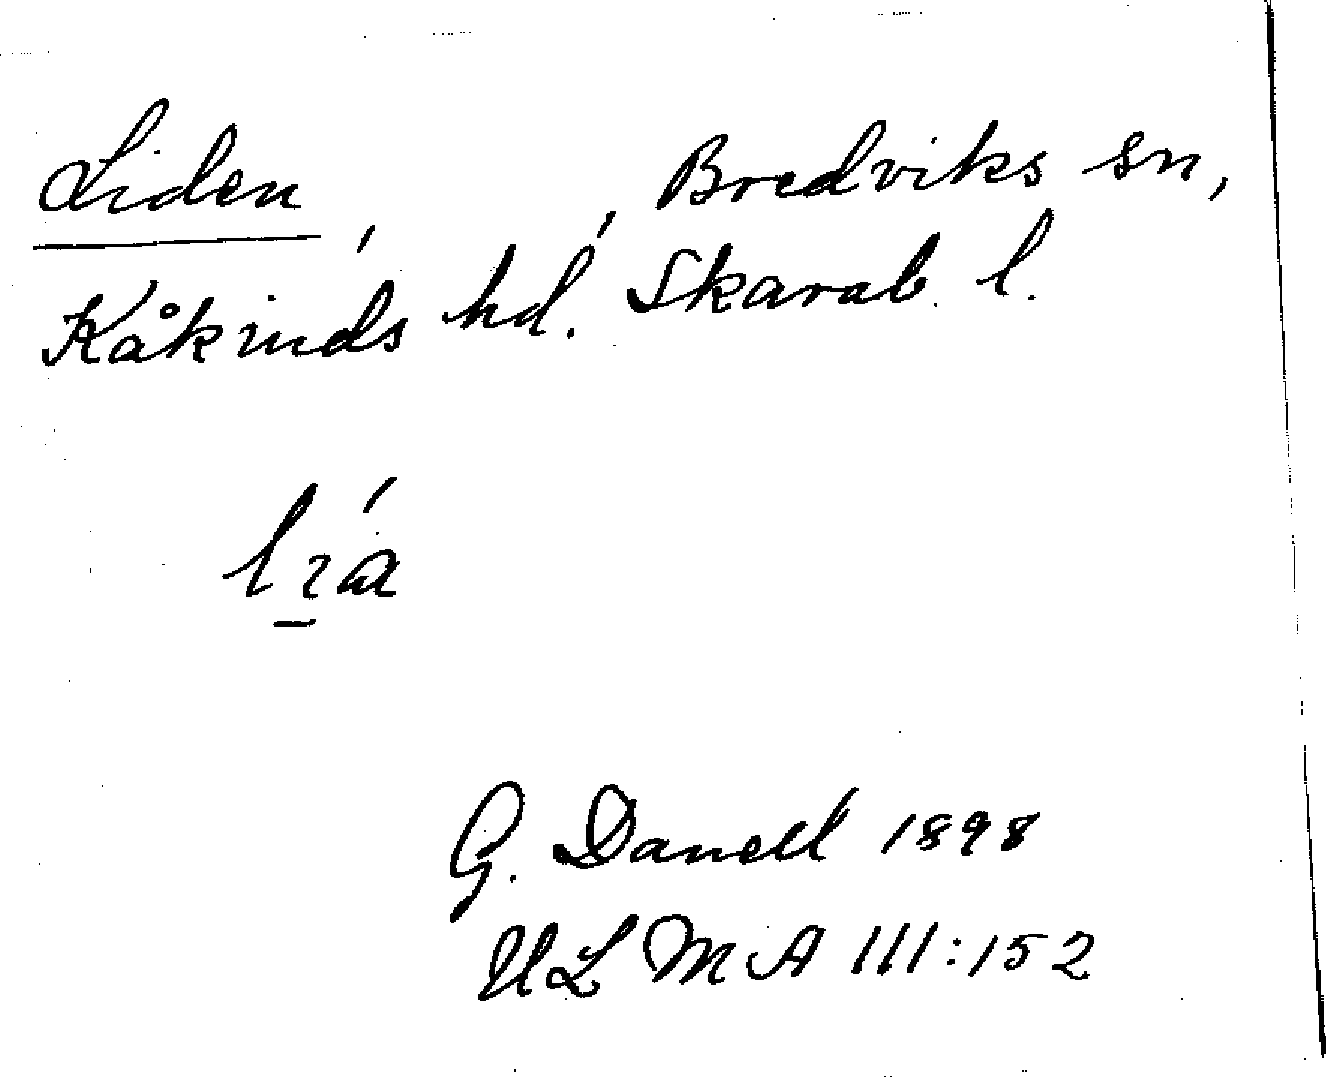 Liden, , Bredviks sn,
Kåkinds hd. Skarab. l.
G. Danell 1898
ULMA III:152